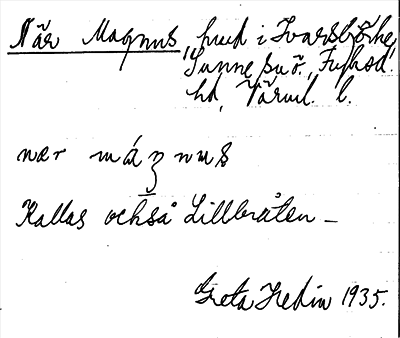 När Magnus, hmd i Ivarsbjörke,
Sunne sn ö., Fryksd.
hd, Värml. l.
nær mágnus
Kallas också Lillbråten -
Greta Hedin 1935.